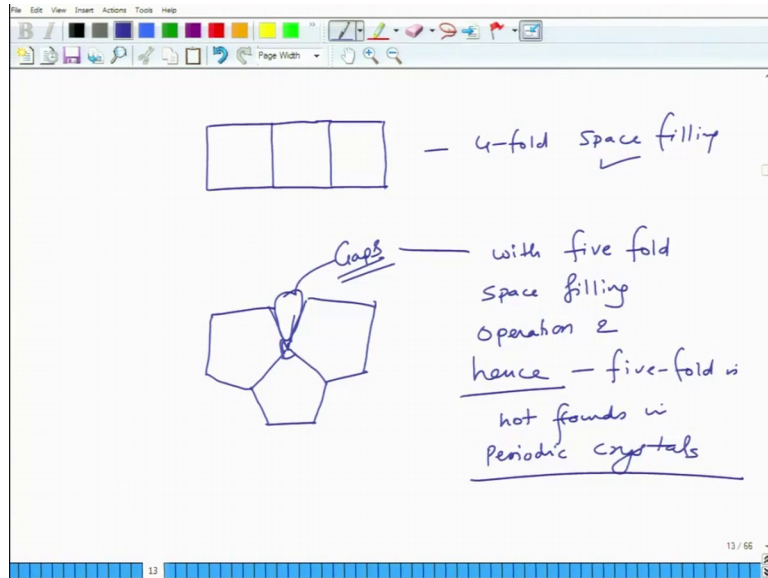 File Edit View Insert Actions Tools Help
B I
Page Width
4-fold space filling
Gaps
with five fold
space filling
operation &
hence - five-fold is
not founds in
Periodic crystals
13 / 66
13